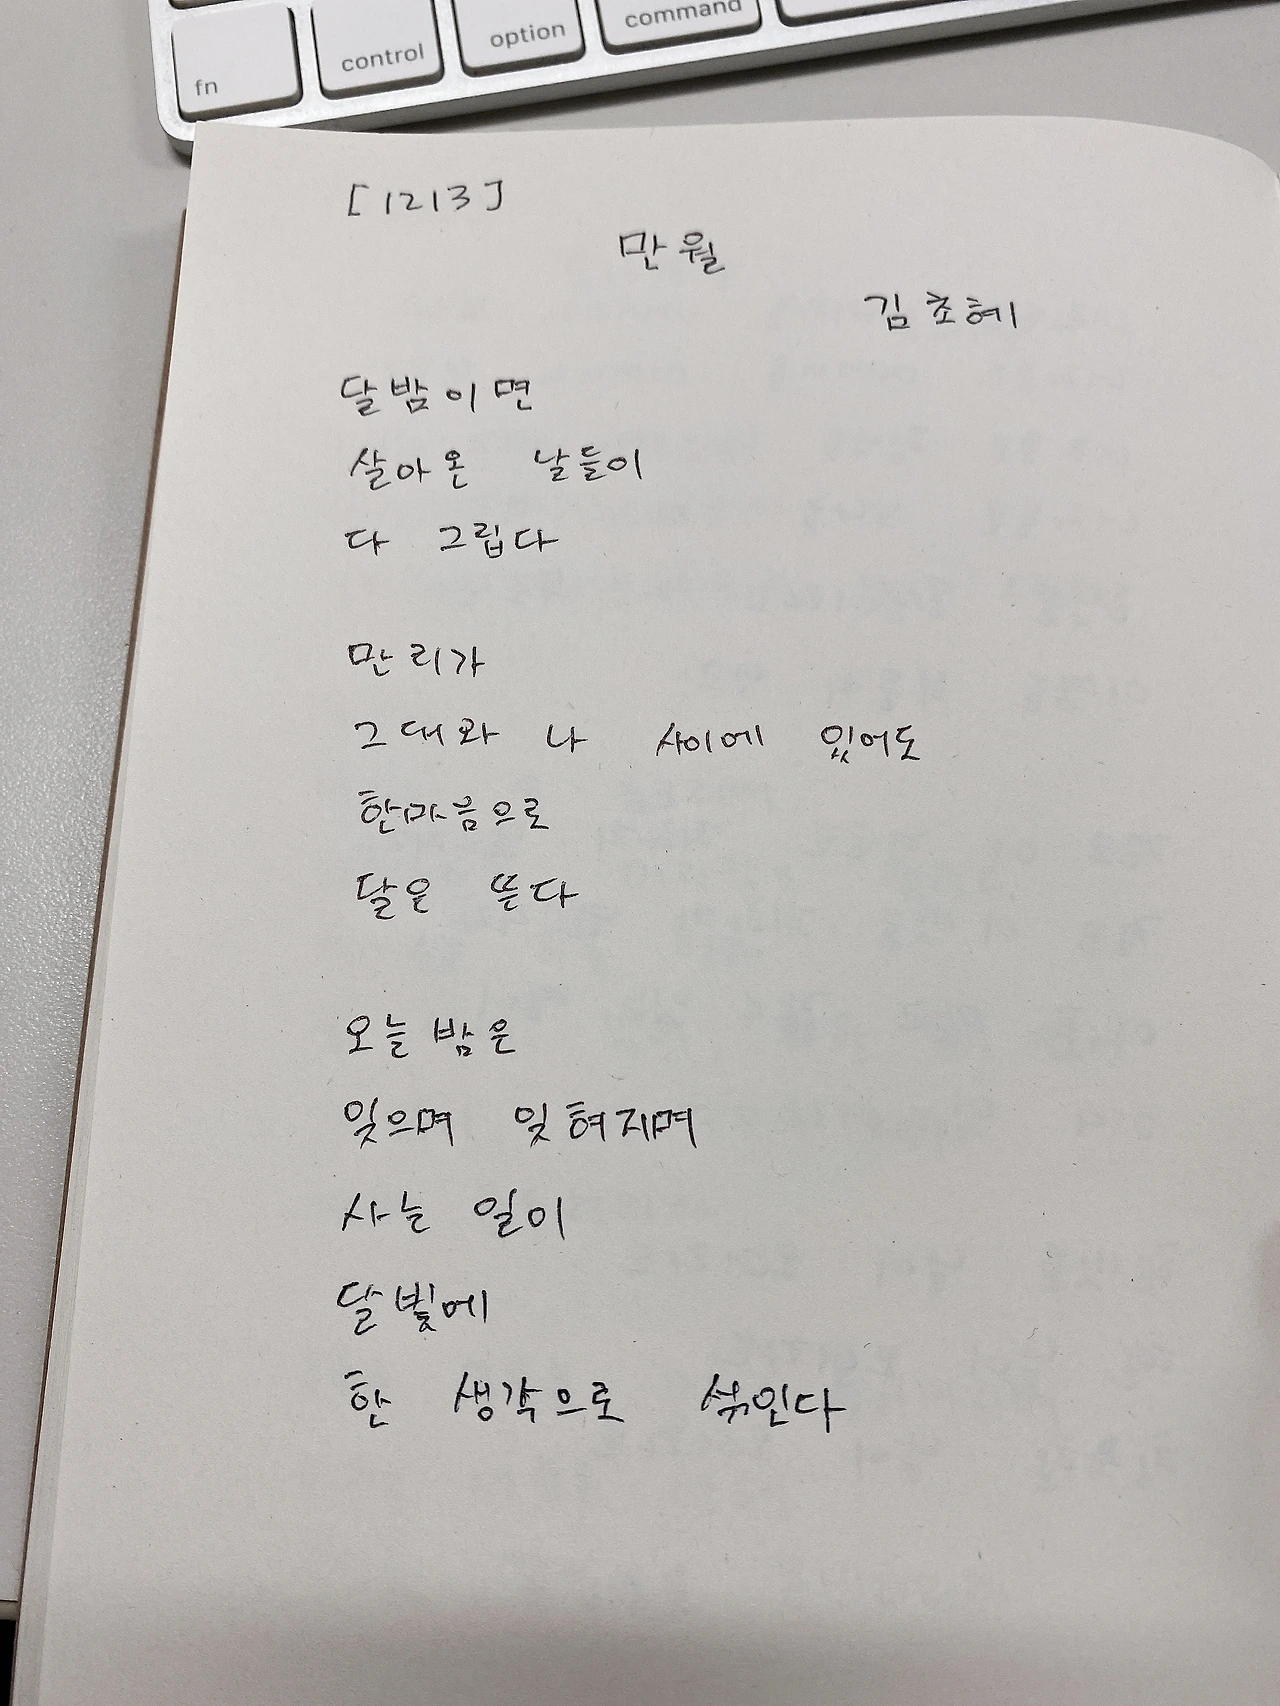 fn control option command
[1213]
만월
김초혜
달밤이면
살아온 날들이
다 그립다
만리가
그대와 나 사이에 있어도
한마음으로
달은 뜬다
오늘밤은
잊으며 잊혀지며
사는 일이
달빛에
한 생각으로 섞인다